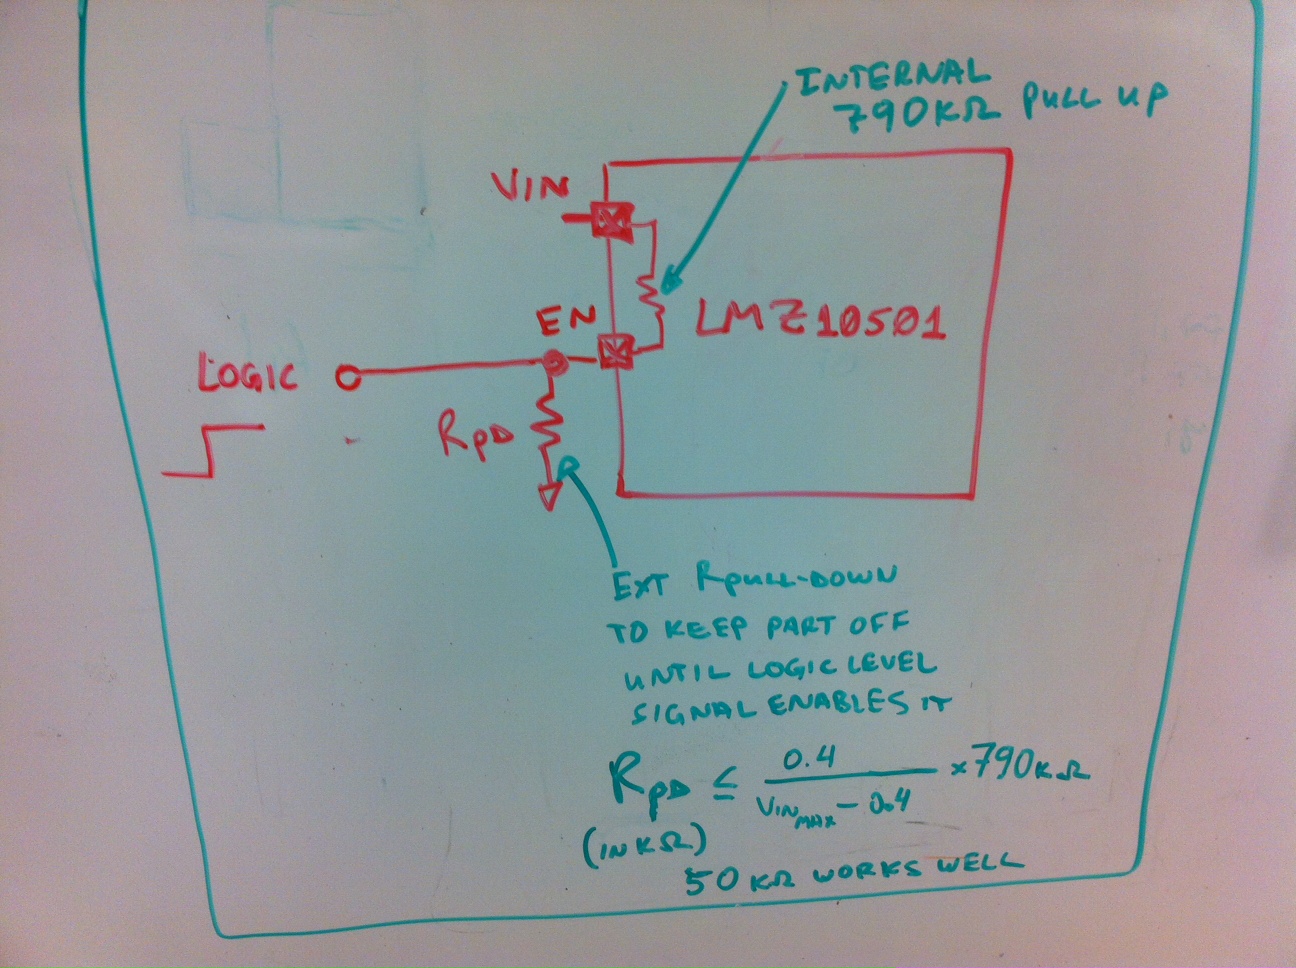 INTERNAL
790KΩ PULL UP
VIN
EN
LMZ10501
LOGIC
RPD
EXT RPULL-DOWN
TO KEEP PART OFF
UNTIL LOGIC LEVEL
SIGNAL ENABLES IT
RPD ≤ 0.4 / VINMAX - 0.4 × 790KΩ
(IN KΩ)
50 KΩ WORKS WELL